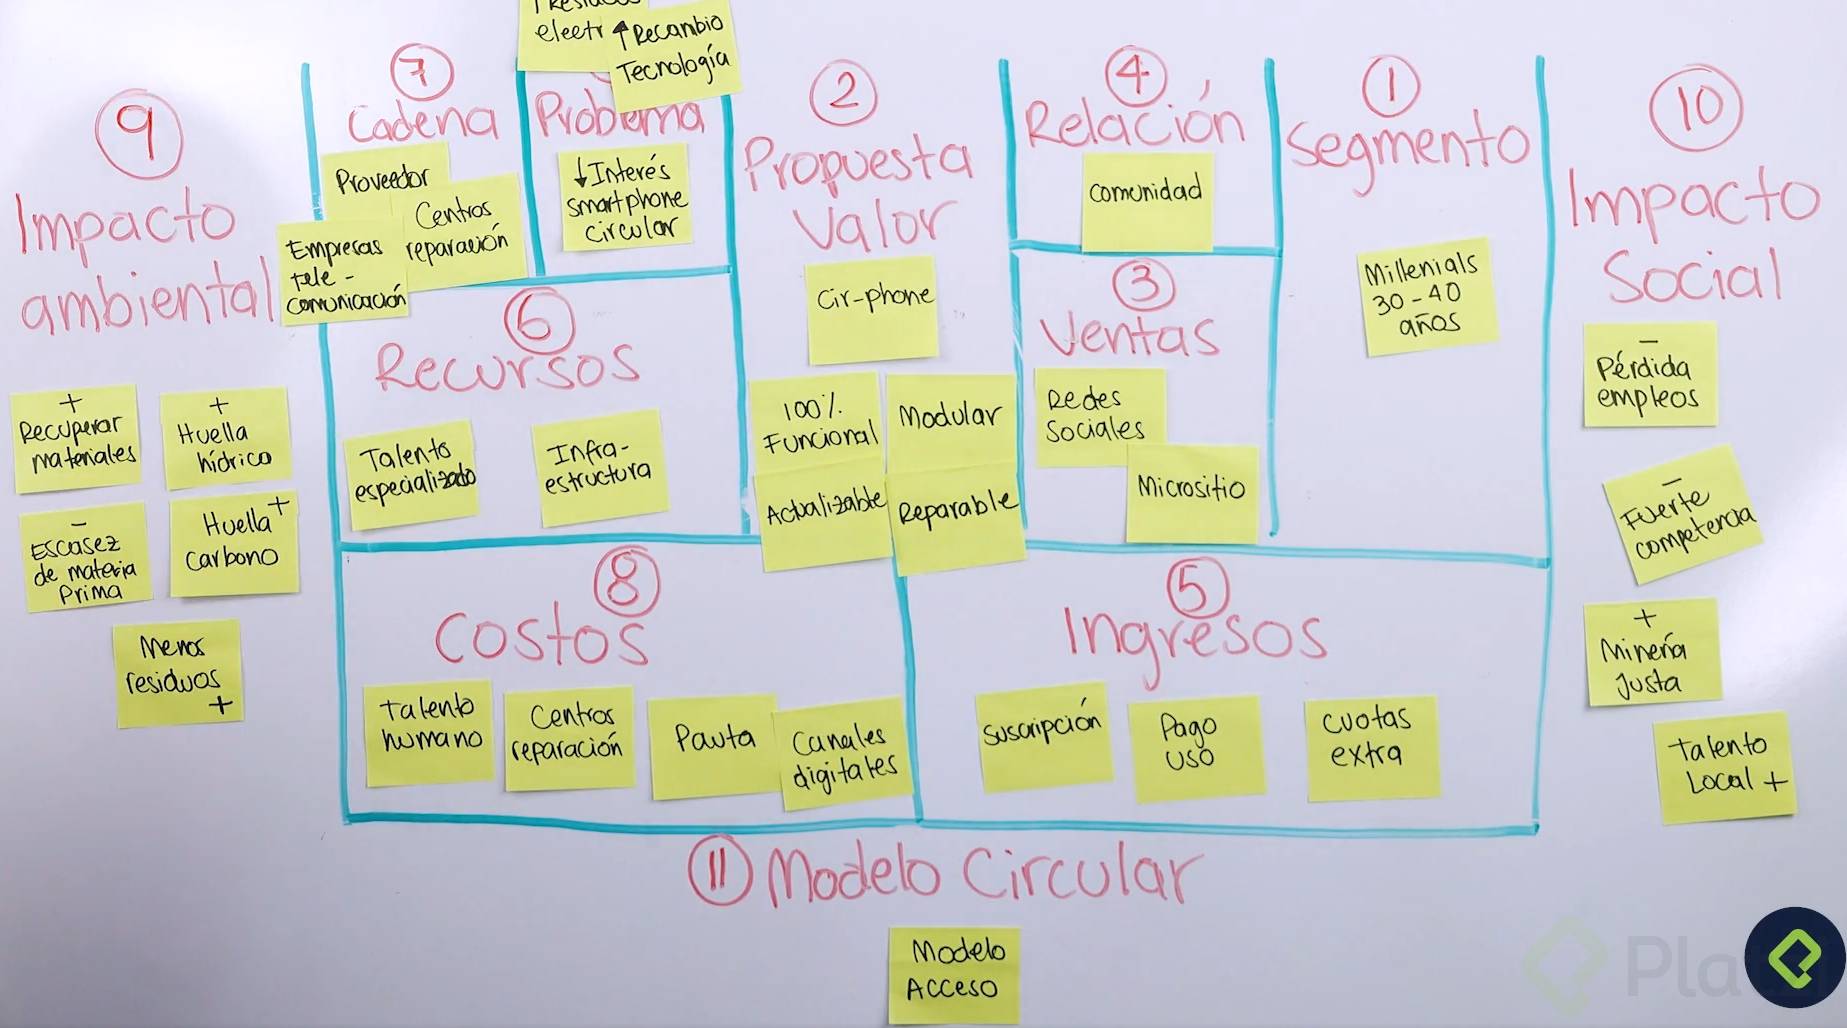 electr
↑ Recambio
Tecnología
9
Impacto
ambiental
+
Recuperar
materiales
+
Huella
hídrica
-
Escasez
de materia
prima
Huella +
carbono
Menos
residuos
+
7
Cadena
Proveedor
Centros
reparación
Empresas
tele-
comunicación
Problema
↓ Interés
smartphone
circular
6
Recursos
Talento
especializado
Infra-
estructura
2
Propuesta
Valor
Cir-phone
100%
Funcional
Modular
Actualizable
Reparable
4
Relación
comunidad
3
Ventas
Redes
Sociales
Micrositio
1
Segmento
Millenials
30-40
años
10
Impacto
Social
-
Pérdida
empleos
-
Fuerte
competencia
+
Minería
Justa
Talento
Local +
8
Costos
Talento
humano
Centros
reparación
Pauta
Canales
digitales
5
Ingresos
Suscripción
Pago
uso
cuotas
extra
11 Modelo Circular
Modelo
Acceso